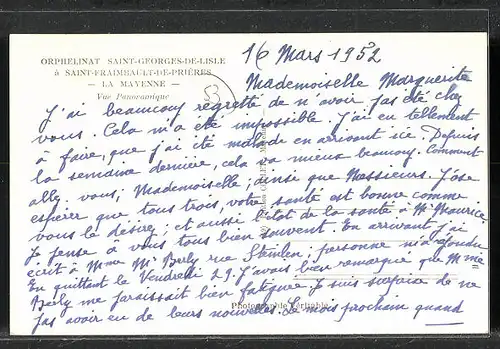 ORPHELINAT SAINT-GEORGES-DE-LISLE
à SAINT-FRAIMBAULT-DE-PRIÈRES
— LA MAYENNE —
Vue Panoramique
53
16 Mars 1952
Mademoiselle Marguerite
J'ai beaucoup regretté de n'avoir pas été chez
vous. Cela m'a été impossible. J'ai eu tellement
à faire, que j'ai été malade en arrivant ici. Depuis
la semaine dernière, cela va mieux beaucoup. Comment
allez-vous, Mademoiselle, ainsi que Messieurs. J'ose
espérer que tous trois, votre santé est bonne comme
vous le désirez; et aussi l'état de la santé à Mr Maurice.
Je pense à vous tous bien souvent. En arrivant, j'ai
écrit à Mme Mr Berly rue Steinlen; personne m'a répondu
En quittant le Vendredi 29. J'avais bien remarqué que Mme
Berly me paraissait bien fatiguée. Je suis surprise de ne
pas avoir eu de leurs nouvelles. Le mois prochain quand
Photographie Véritable